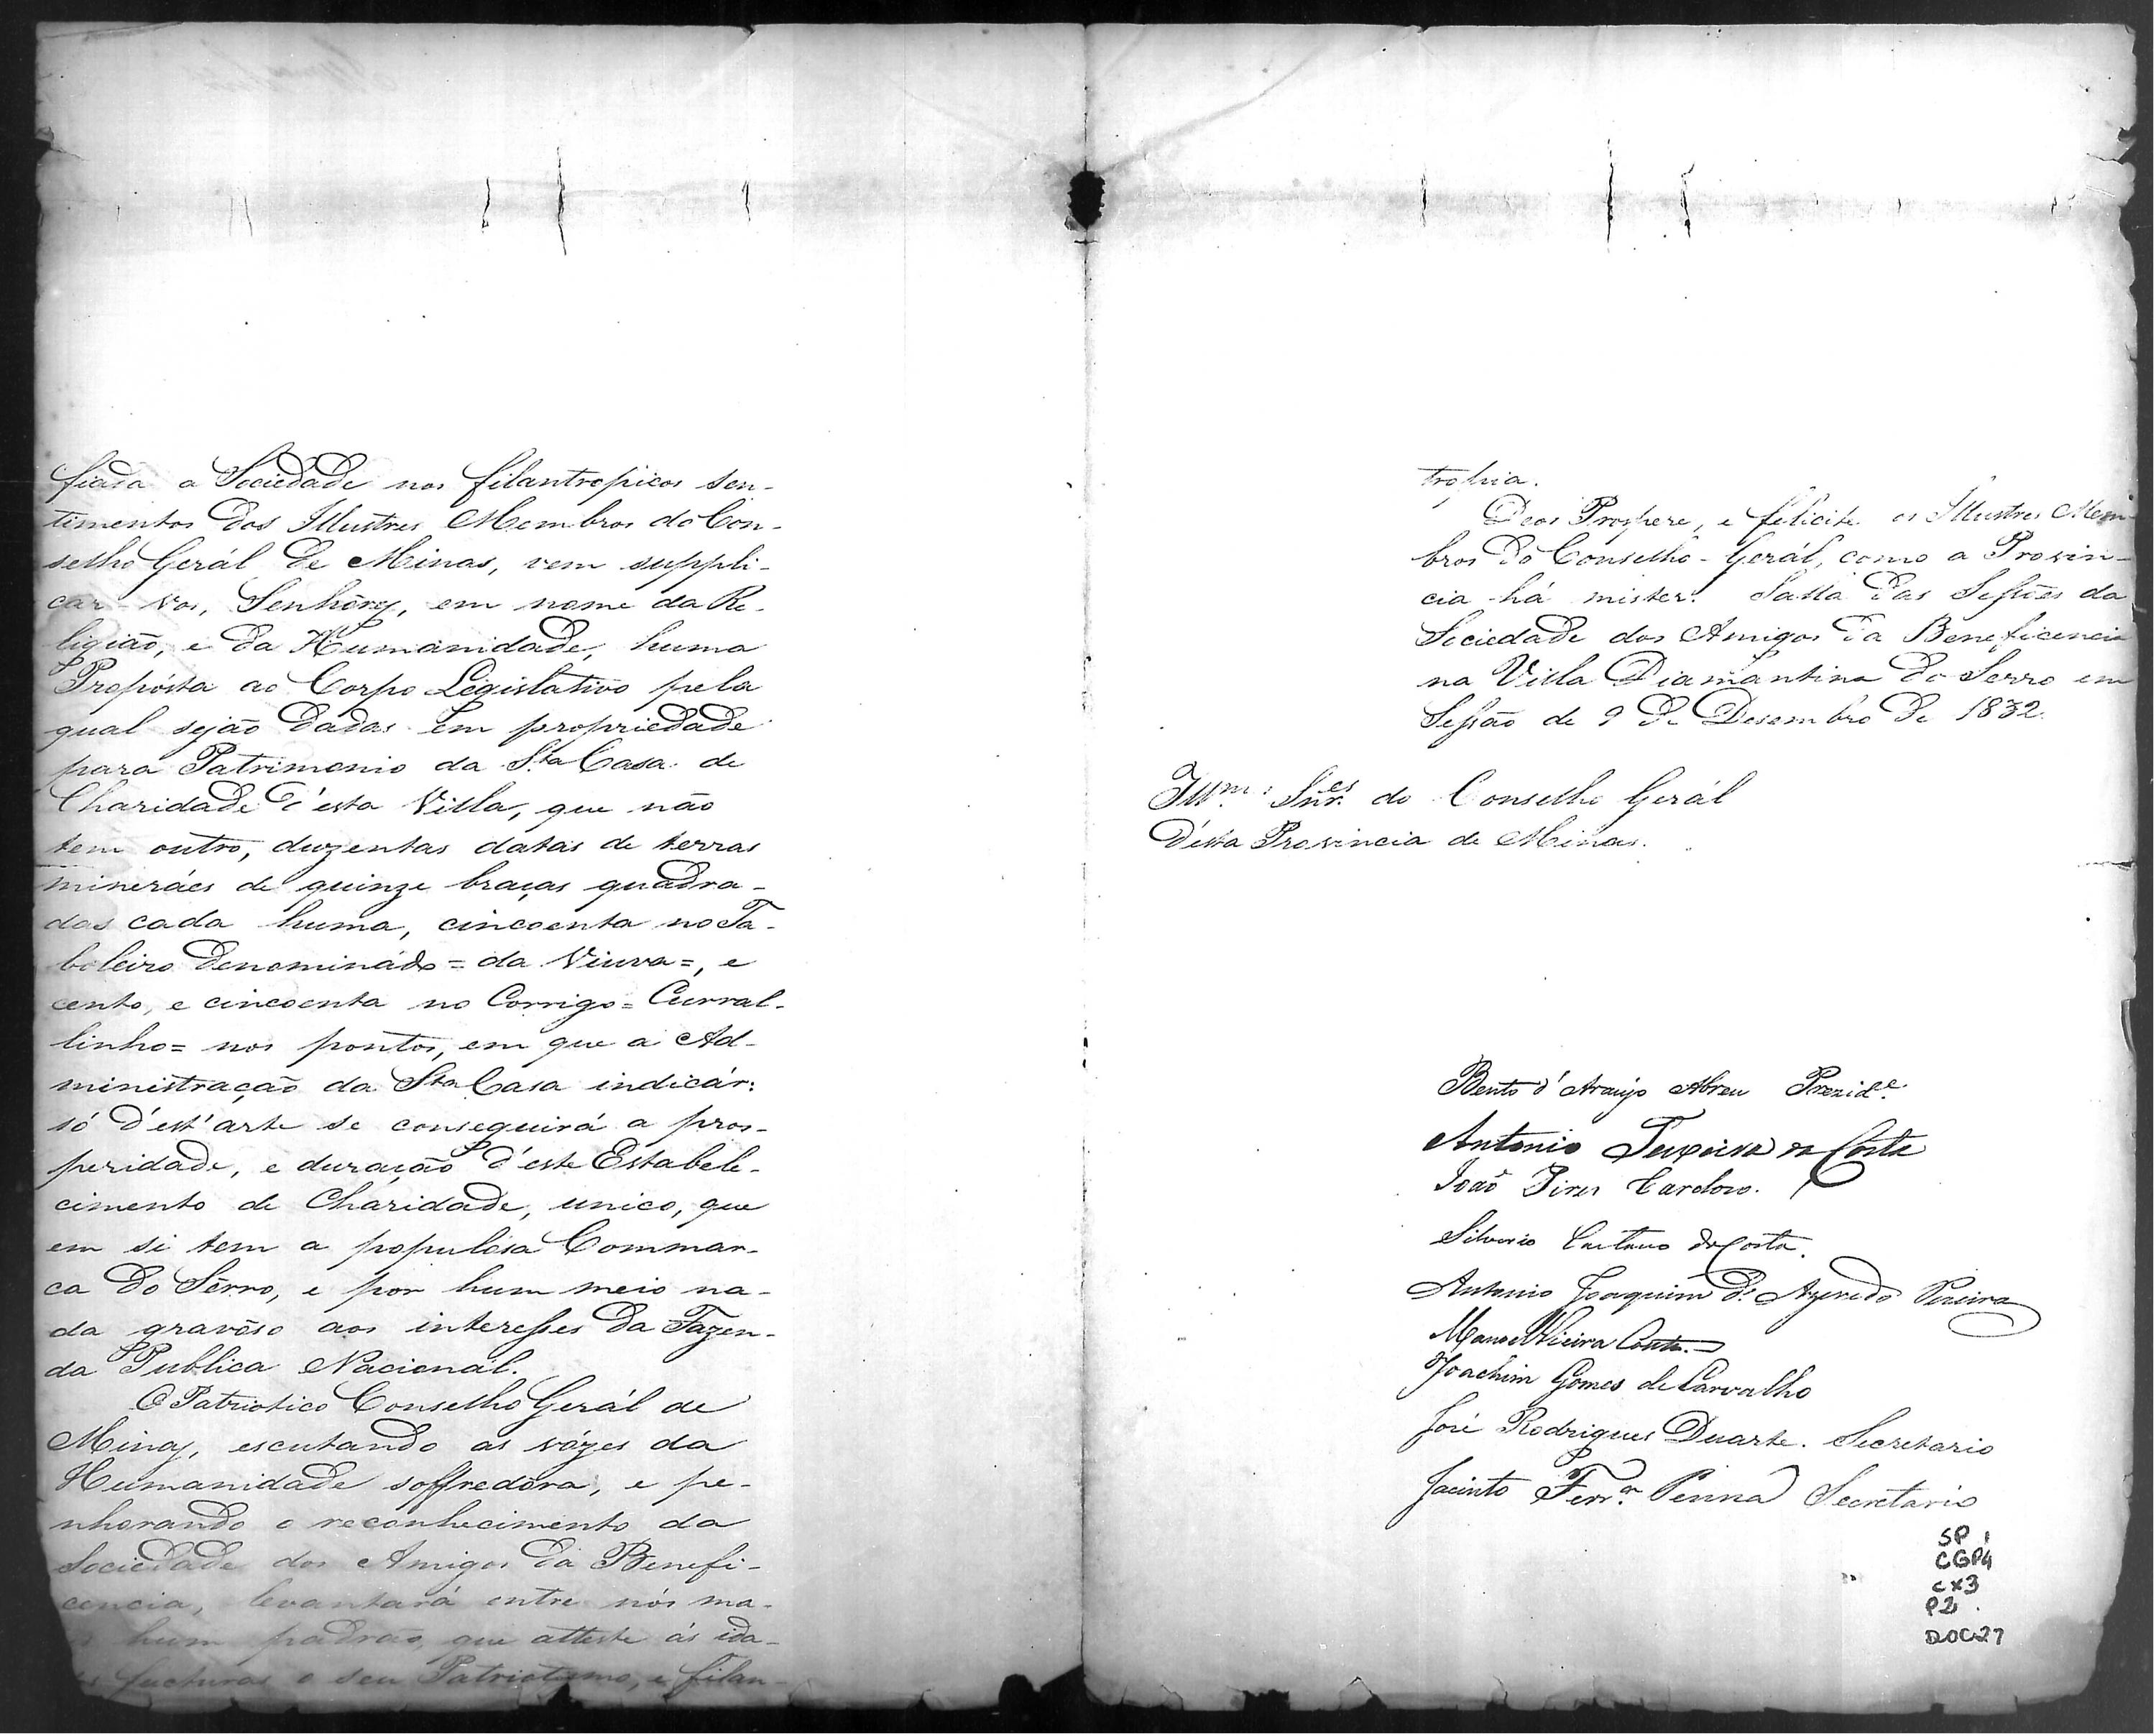 fiada a Sociedade nos filantropicos sen-
timentos dos Illustres Membros do Con-
selho Gerál de Minas, vem suppli-
car-vos, Senhôres, em nome da Re-
ligião, e da Humanidade, huma
Propósta ao Corpo Legislativo pela
qual sejão dadas em propriedade
para Patrimonio da Sta Casa de
Charidade d'esta Villa, que não
tem outro, duzentas datas de terras
mineráes de quinze braças quadra-
das cada huma, cincoenta no Ta-
boleiro denominádo = da Viuva =, e
cento, e cincoenta no Corrigo = Curral-
linho = nos pontos, em que a Ad-
ministração da Sta Casa indicár:
só d'est'arte se conseguirá a pros-
peridade, e duração d'este Estabele-
cimento de Charidade, unico, que
em si tem a populósa Commar-
ca do Sêrro, e por hum meio na-
da gravôso aos interesses da Fazen-
da Publica Nacionál.
O Patriotico Conselho Gerál de
Minas, escutando as vózes da
Humanidade soffredôra, e pe-
nhorando o reconhecimento da
Sociedade dos Amigos da Benefi-
cencia, levantará entre nós ma-
hum padrão, que atteste ás ida-
fucturas o seu Patriotismo, e filan-
tropia.
Deos Prospere, e felicite os Illustres Mem-
bros do Conselho-Gerál, como a Provin-
cia há mister. Salla das Sessões da
Sociedade dos Amigos da Beneficencia
na Villa Diamantina do Serro em
Sessão de 9 de Desembro de 1832.
Illm.s Snr.es do Conselho Gerál
D'esta Provincia de Minas.
Bento d'Araujo Abreu Prezid.e
Antonio Teixeira da Costa
João Pires Cardozo.
Silverio Caetano da Costa.
Antonio Joaquim d'Azevedo Pereira
Manoel Vieira Couto.
Joachim Gomes de Carvalho
José Rodrigues Duarte. Secretario
Jacinto Ferr.a Penna Secretario
SP
CGP4
cx3
P2.
DOC27